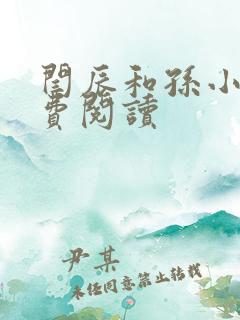 閨辰和孫小
費閱讀
尹某
未经同意禁止转载